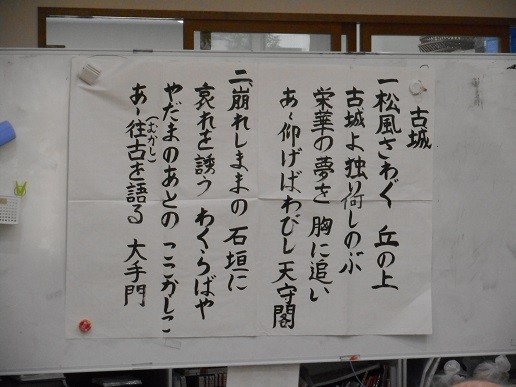 古城
一、松風さわぐ 丘の上
古城よ独り何しのぶ
栄華の夢を 胸に追い
あゝ仰げばわびし 天守閣
二、崩れしままの 石垣に
哀れを誘う わくらばや
やだまのあとの ここかしこ
あゝ往古を語る 大手門
(むかし)